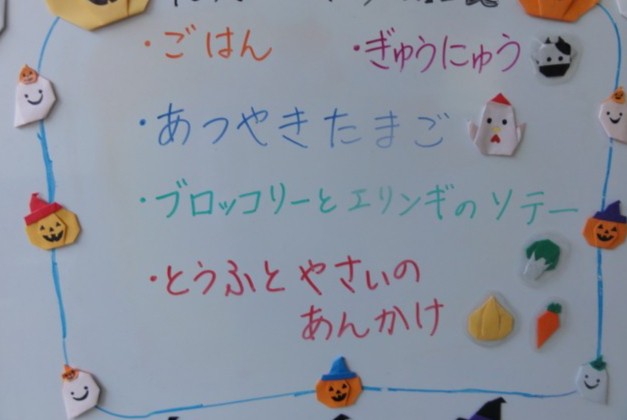 ・ごはん ・ぎゅうにゅう
・あつやきたまご
・ブロッコリーとエリンギのソテー
・とうふとやさいの
あんかけ